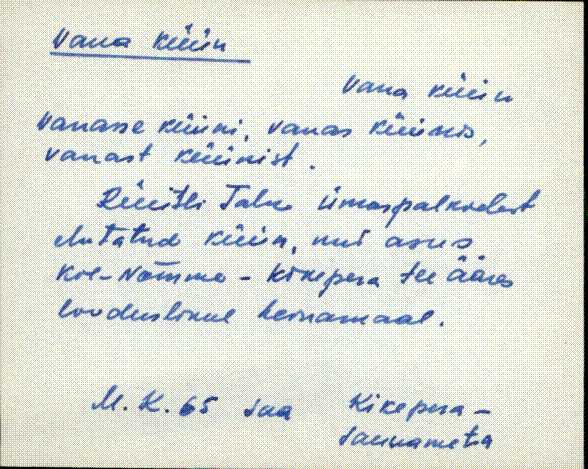 Vana küün
Vana küün
Vanasse küüni, vanas küünis,
vanast küünist.
Rüütli Talu ümaspalkidest
ehitatud küün, mis asus
Koe-Nõmme - Kikepera tee ääres
looduslikul heinamaal.
M. K. 65 saa Kikepera -
saunametsa